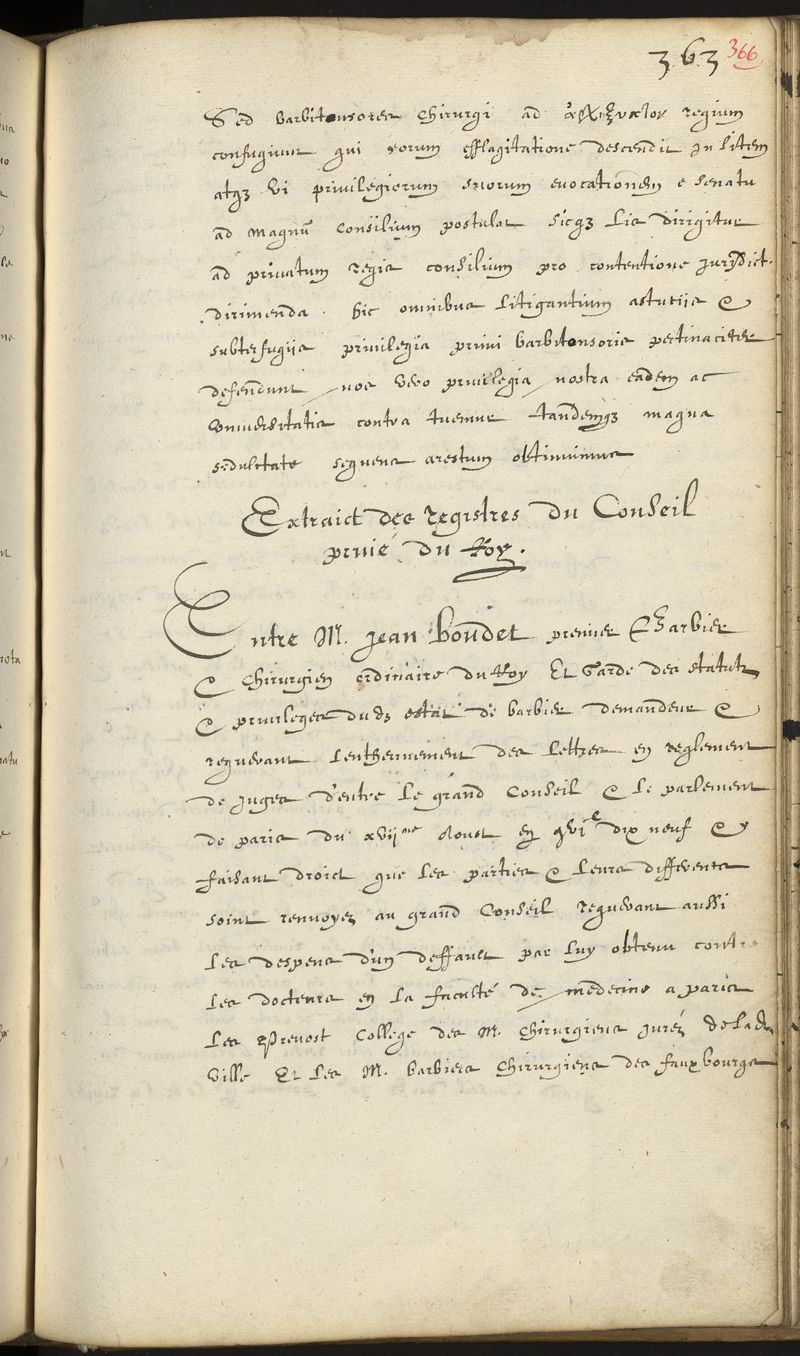 363 366
Sed barbitonsores chirurgi ad regium
confugiunt qui eorum efflagitatione descendit in litem
atqz vi privilegiorum suorum evocationem e senatu
ad magnū consilium postulat sicqz lis dirigitur
ad privatum regis consilium pro contentione jurisdict.
dirimenda. hic omnibus litigantium astutijs &
subterfugijs privilegia primi barbitonsoris pertinaciter
defendunt nos vero privilegia nostra eadem ac
universitatis contra tuemur tandemqz magna
sedulitate sequens arestum obtinuimus
Extraict des registres du Conseil
privé du Roy.
Entre M. Jean Boudet premier Barbier
& chirurgien ordinaire du Roy Et Garde des statutz
& privileges dudz estat de barbier demandeur &
requerant lentherinement des lettres en reglement
de juges d'entre le grand Conseil & le parlement
de paris du xvij me Aoust dix neuf &
faisant droict que les parties & leurs differents
soint renvoyez au grand Conseil requerant aussi
les despens d'un deffault par luy obtenu contre
les docteurs en la faculté de medecine a paris
les Prevost College des M. chirurgiens jurez de lad.
ville Et les M. barbiers chirurgiens des fauxbourgs